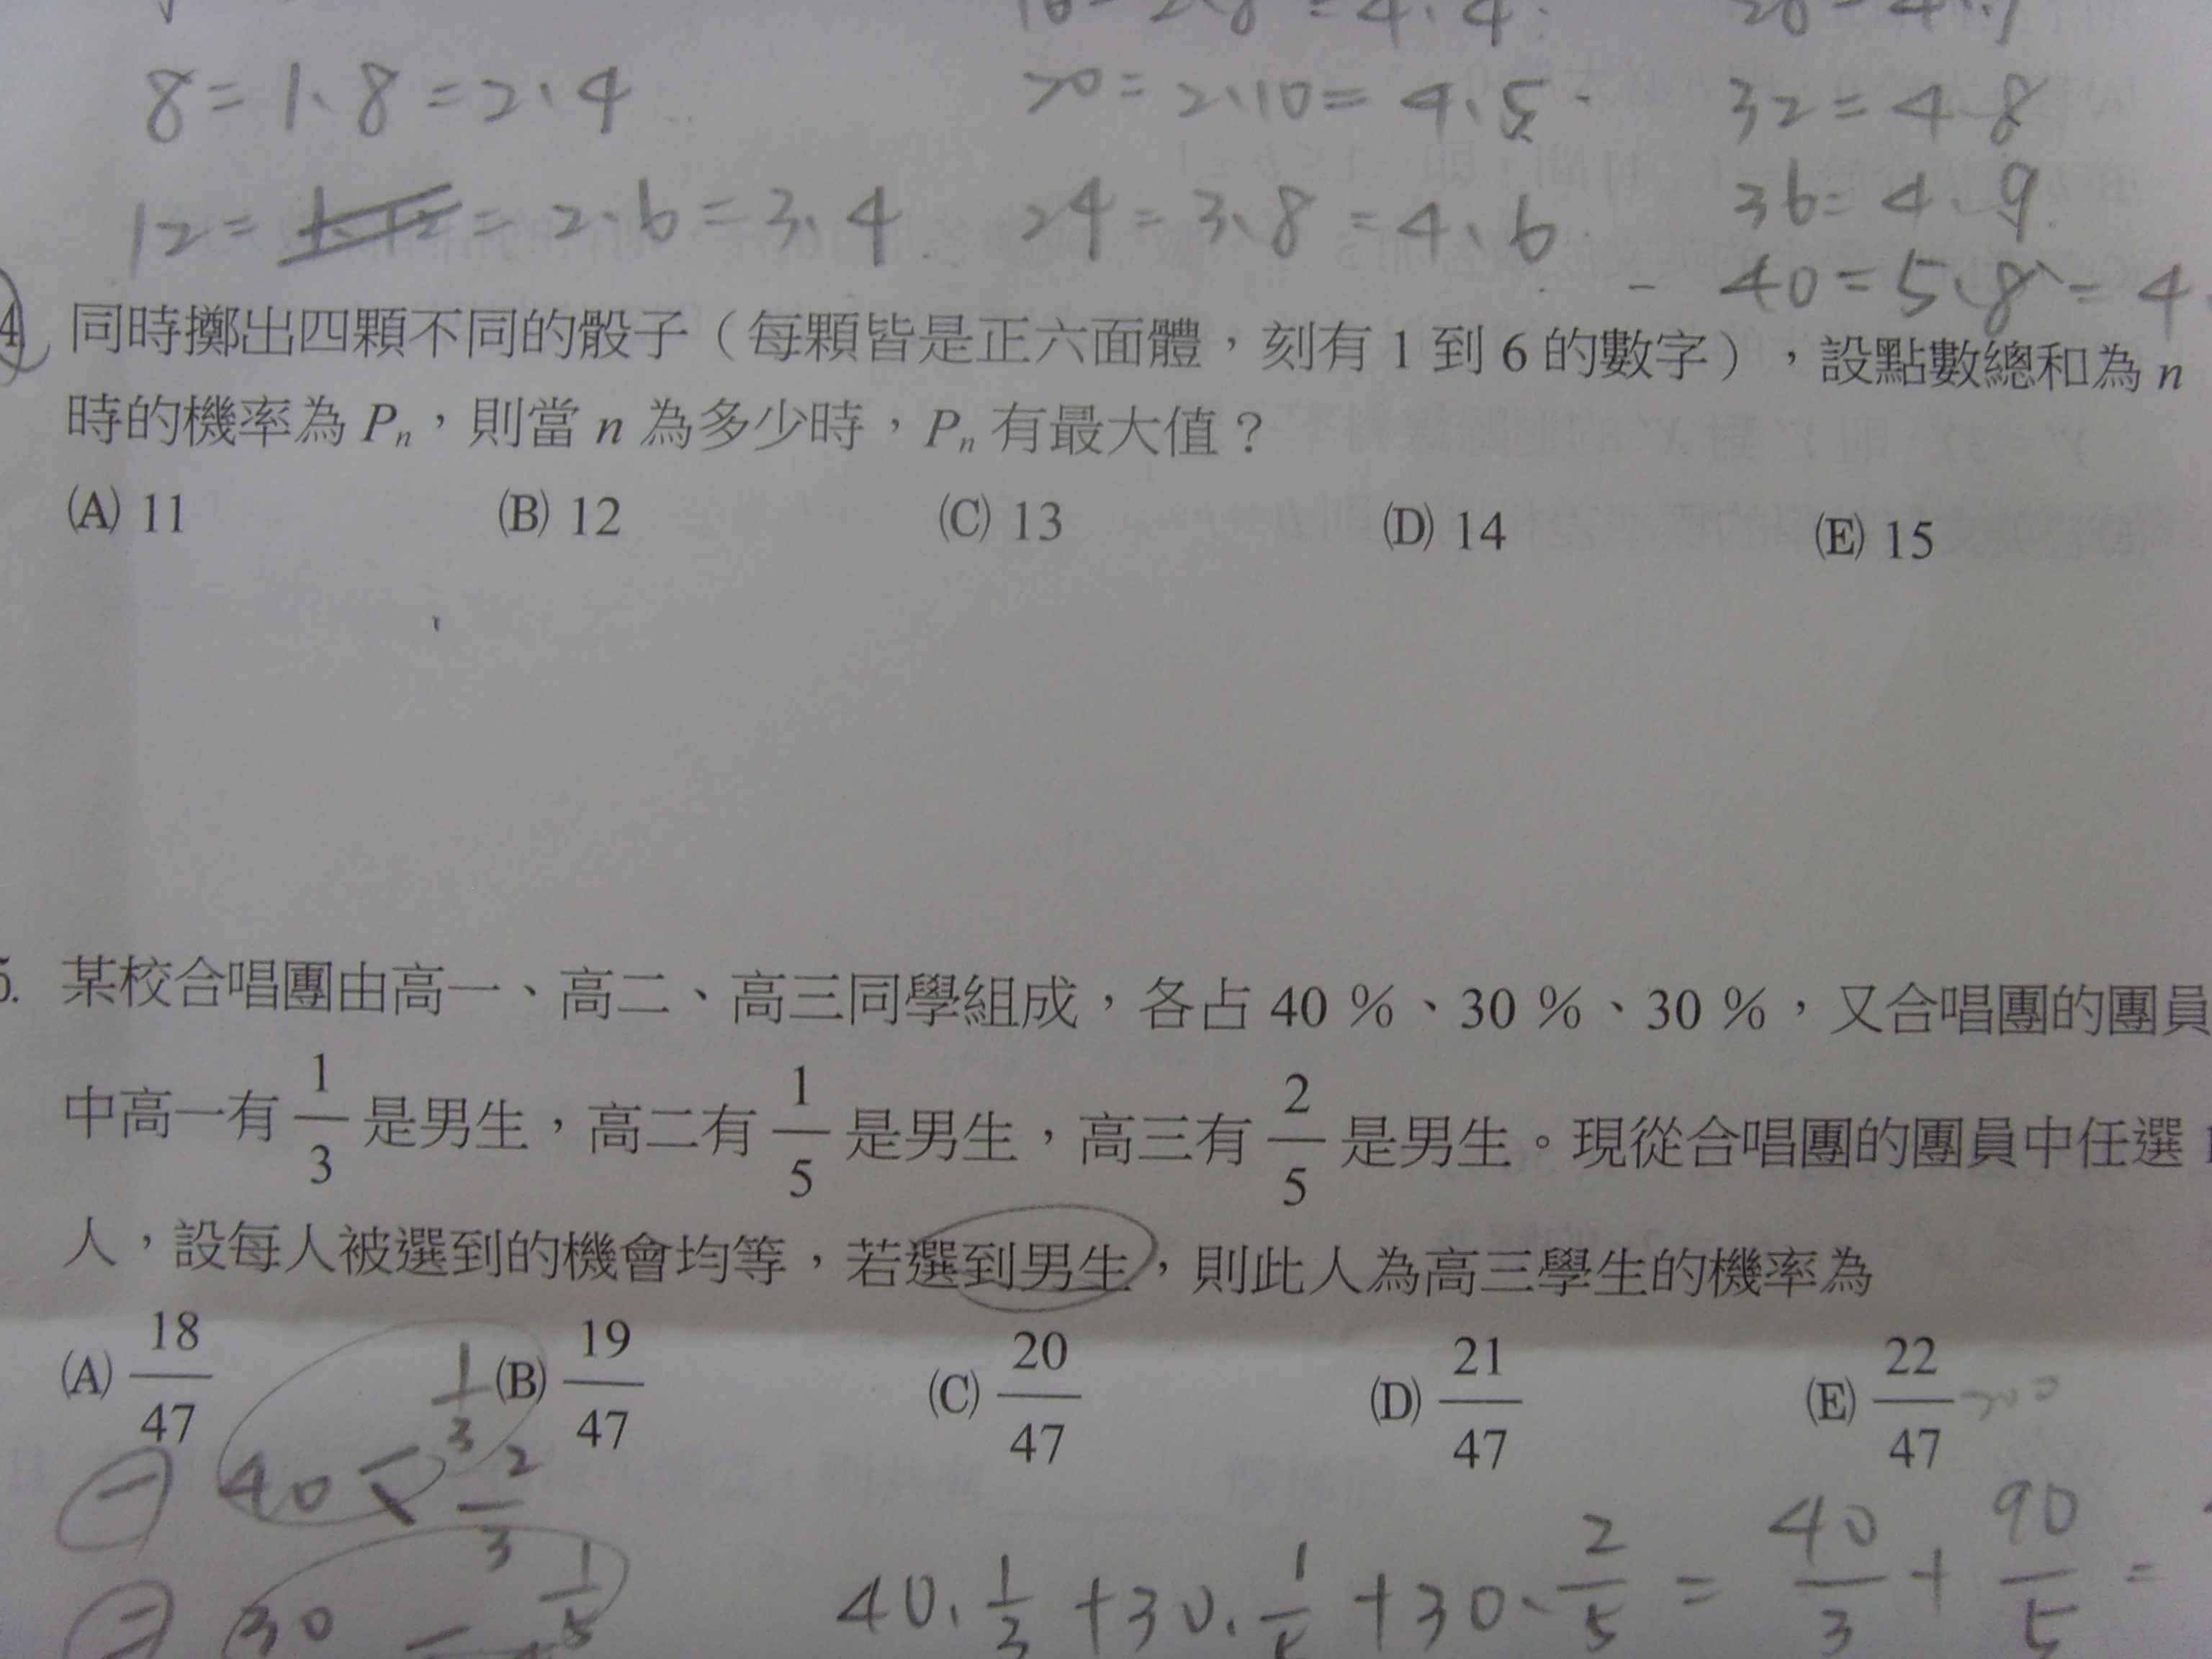 16=2.8=4.4.
28=4.7
8=1.8=2.4
20=2.10=4.5.
32=4.8
12=1.12=2.6=3.4
24=3.8=4.6
36=4.9
40=5.8=4
4 同時擲出四顆不同的骰子（每顆皆是正六面體，刻有 1 到 6 的數字），設點數總和為 n
時的機率為 Pn，則當 n 為多少時，Pn 有最大值？
(A) 11 (B) 12 (C) 13 (D) 14 (E) 15
5. 某校合唱團由高一、高二、高三同學組成，各占 40 %、30 %、30 %，又合唱團的團員
中高一有 1/3 是男生，高二有 1/5 是男生，高三有 2/5 是男生。現從合唱團的團員中任選 1
人，設每人被選到的機會均等，若選到男生，則此人為高三學生的機率為
(A) 18/47 (B) 19/47 (C) 20/47 (D) 21/47 (E) 22/47
一 40 × 1/3 2/3
二 30 1/5
40.1/3+30.1/5+30.2/5=40/3+90/5=